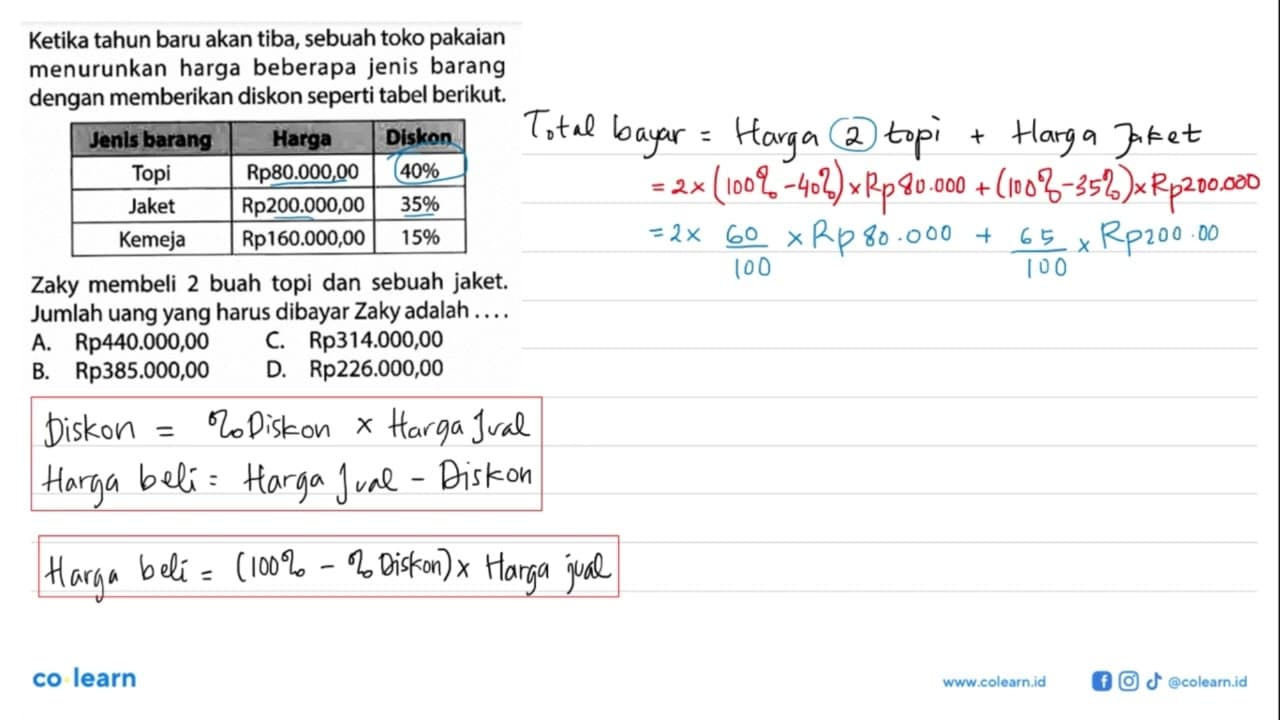 Ketika tahun baru akan tiba, sebuah toko pakaian
menurunkan harga beberapa jenis barang
dengan memberikan diskon seperti tabel berikut.
Jenis barang Harga Diskon
Topi Rp80.000,00 40%
Jaket Rp200.000,00 35%
Kemeja Rp160.000,00 15%
Zaky membeli 2 buah topi dan sebuah jaket.
Jumlah uang yang harus dibayar Zaky adalah ....
A. Rp440.000,00 C. Rp314.000,00
B. Rp385.000,00 D. Rp226.000,00
Diskon = % Diskon x Harga Jual
Harga beli = Harga Jual - Diskon
Harga beli = (100% - % Diskon) x Harga jual
Total bayar = Harga 2 topi + Harga Jaket
= 2 x (100% - 40%) x Rp80.000 + (100% - 35%) x Rp200.000
= 2 x 60/100 x Rp80.000 + 65/100 x Rp200.00
co learn
www.colearn.id @colearn.id